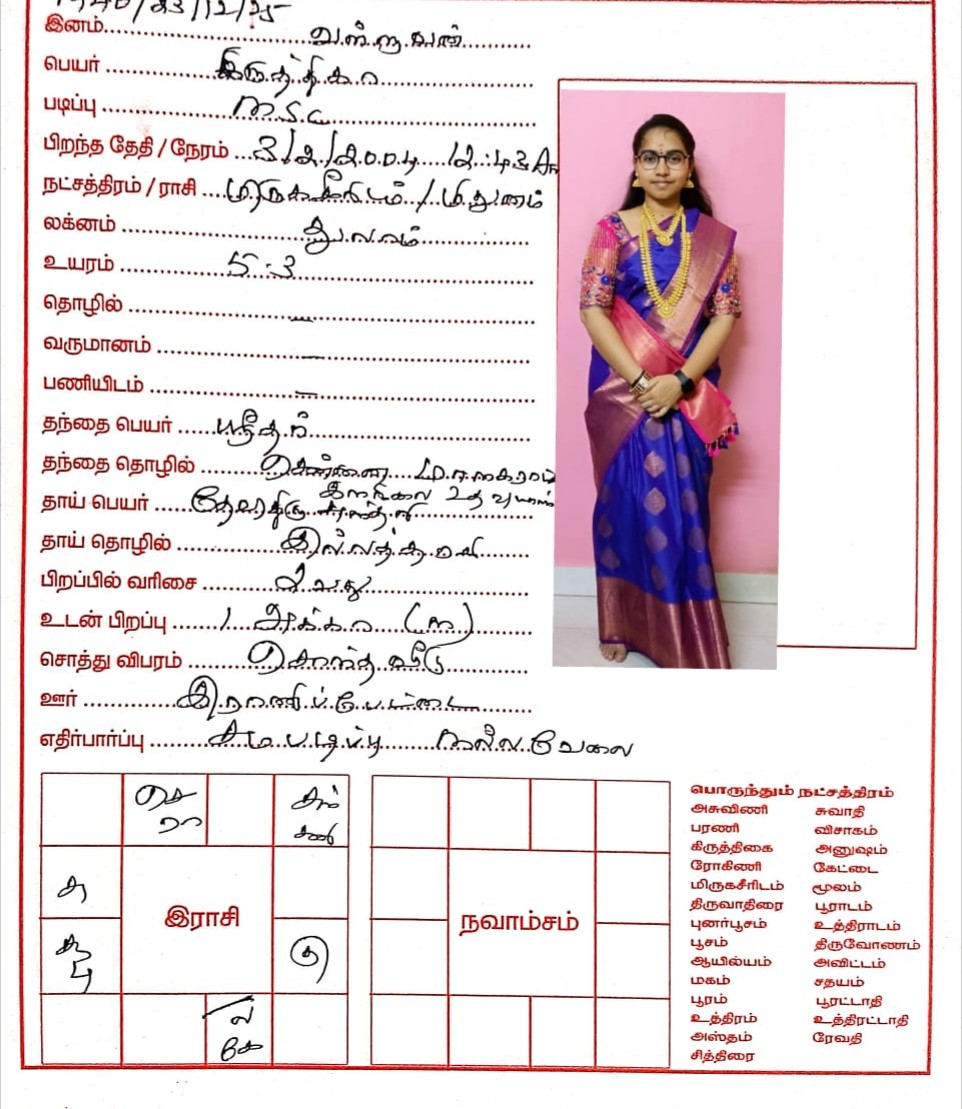 1940/23/12/25
இனம் வள்ளுவன்
பெயர் கிருத்திகா
படிப்பு M.S.C
பிறந்த தேதி / நேரம் 3/2/2004 12:43 Am
நட்சத்திரம் / ராசி மிருகசீரிடம் / மிதுனம்
லக்னம் துலாம்
உயரம் 5.3
தொழில் —
வருமானம் —
பணியிடம் —
தந்தை பெயர் ஸ்ரீதர்
தந்தை தொழில் சென்னை
தாய் பெயர்
தாய் தொழில் இல்லத்தரசி
பிறப்பில் வரிசை 2 வது
உடன் பிறப்பு 1 அக்கா (ம)
சொத்து விபரம் சொந்த வீடு
ஊர் இராணிப்பேட்டை
எதிர்பார்ப்பு சம படிப்பு நல்ல வேலை
செ
ரா
சந்
சனி
சு
இராசி
பு
கு
ல
கே
நவாம்சம்
பொருந்தும் நட்சத்திரம்
அசுவிணி சுவாதி
பரணி விசாகம்
கிருத்திகை அனுஷம்
ரோகிணி கேட்டை
மிருகசீரிடம் மூலம்
திருவாதிரை பூராடம்
புனர்பூசம் உத்திராடம்
பூசம் திருவோணம்
ஆயில்யம் அவிட்டம்
மகம் சதயம்
பூரம் பூரட்டாதி
உத்திரம் உத்திரட்டாதி
அஸ்தம் ரேவதி
சித்திரை